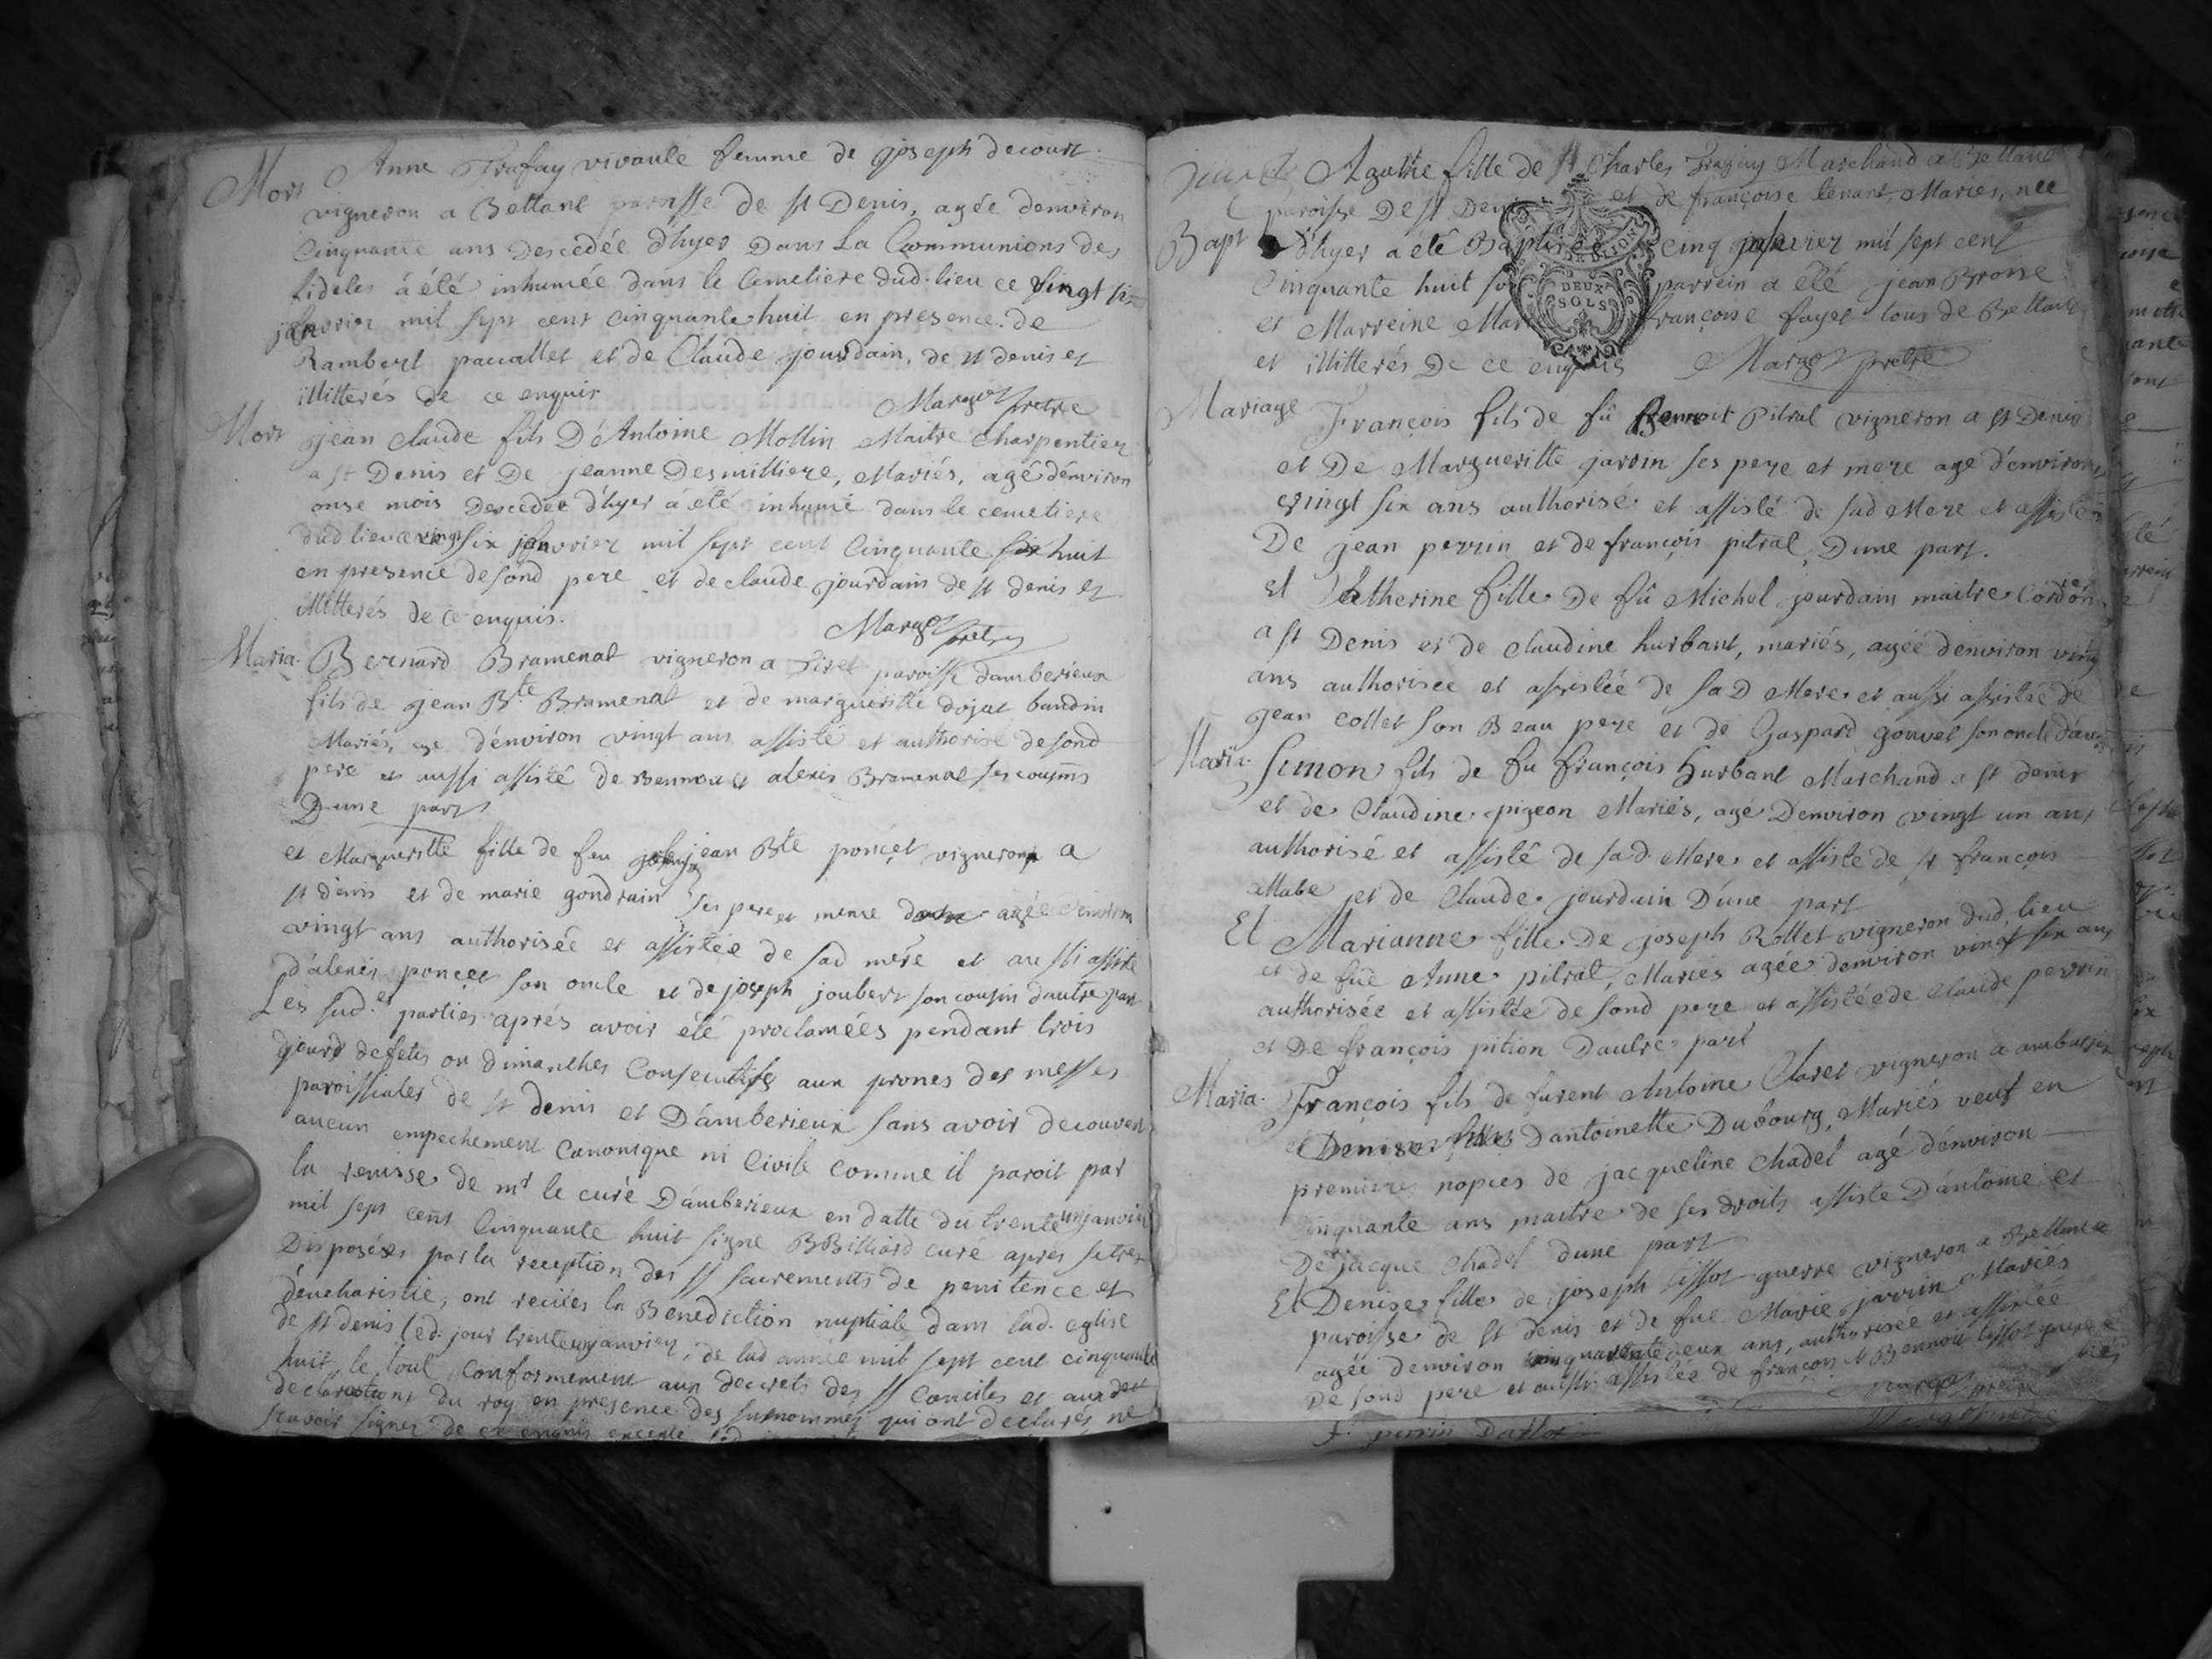 Mort Anne Trafay vivante femme de joseph decourt
vigneron a Bettant paroisse de st Denis, agée denviron
Cinquante ans Descedée d'hyer Dans La Communions des
fideles à été inhumée dans le Cemetiere dud. lieu ce vingt six
janvier mil sept cent cinquante huit en presence de
Rambert paccallet et de Claude jourdain, de st denis et
illitterés de ce enquis
Margot pretre
Mort jean Claude fils D'Antoine Mollin Maitre Charpentier
a st Denis et De jeanne Desmilliere, Mariés, agé dénviron
onse mois Descedée d'hyer à été inhumé dans le cemetiere
dud lieu ce vingt six janvrier mil sept cent Cinquante huit
en presence de sond pere et de claude jourdain de st denis et
illitterés de ce enquis.
Margot pretre
Maria. Bernard Bramenat vigneron a paroisse damberieux
fils de jean Bte Bramenat et de margueritte dojat baudin
Mariés, age dénviron vingt ans assisté et authorisé de sond
pere et aussi assisté de Bennoit et alexis Bramenat ses cousins
D'une part
et Margueritte fille de feu jean Bte ponçet vigneron a
st denis et de marie gondrain ses pere et mere agée denviron
vingt ans authorisée et assistée de sad mére et aussi assisté
d'alexis ponçet son oncle et de joseph joubert son cousin dautre part
Les sud.es parties aprés avoir été proclamées pendant trois
jours de fetes ou dimanches Consecutifs aux prones des messes
paroissiales de st denis et D'amberieux sans avoir decouvert
aucun empechement Canonique ni Civile comme il paroit par
la remisse de mr le curé D'amberieux en datte du trente un janvier
mil sept cent Cinquante huit signé BBilliard curé apres setre
Disposées par la reception des SS sacrements de penitence et
déucharistie, ont reciües la Benediction nuptiale dans lad. eglise
de st denis led. jour trente un janvier, de lad année mil sept cent cinquante
huit, le tout Conformement aux decrets des SS Conciles et aux
declarations du roy en presence des susnommés qui ont declarés ne
scavoir signer de ce enquis
Agathe fille de sr Charles Trafay Marchand a Bettant
paroisse De st Denis et de françoise tenant Mariés, née
Bapt d'hyer a été Baptisée cinq mil sept cent
Cinquante huit son parrein a été jean Brosse
et Marreine françoise fayet tous de Bettant
et illitterés De ce enquis Margot pretre
DEUX
SOLS
Mariage François fils de fû Benoit Pitral vigneron a st Denis
et De Margueritte jarrin ses pere et mere age d'environ
vingt six ans authorisé et assisté de sad Mere et assisté
De jean perrin et de françois pitral, D'une part.
et Catherine fille De fû Michel jourdain maitre Cordonier
a st Denis et de claudine hurbant, mariés, agée denviron vingt
ans authorisée et assistée de saD Mere et aussi assistée de
jean collet son Beau pere et de Gaspard gouvet son oncle
Maria. Simon fils de fu françois Hurbant Marchand a st denis
et de Claudine pigeon Mariés, agé Denviron vingt un ans
authorisé et assisté de sad. Mere et assisté de sr françois
allabe et de Claude jourdain D'une part
Et Marianne fille De joseph Rollet vigneron dud. lieu
et de fue Anne pitral, Mariés agée denviron vingt six ans
authorisée et assistée de sond pere et assistée de claude perrin
et De françois pition Dautre part
Maria. François fils de furent Antoine Claret vigneron a
et dantoinette Dubourg, Mariés veuf en
premiere nopces de jacqueline Chadel agé dénviron
cinquante ans maitre de ses droits assisté D'antoine et
De jacque Chadel dune part
Et Denise fille de joseph tissot guerre vigneron a Bettant
paroisse de st denis et de fue Marie jarrin Mariés
agée denviron quarente deux ans, authorisée et assistée
De sond pere et aussi assistée de françois et Bennoit tissot guerre